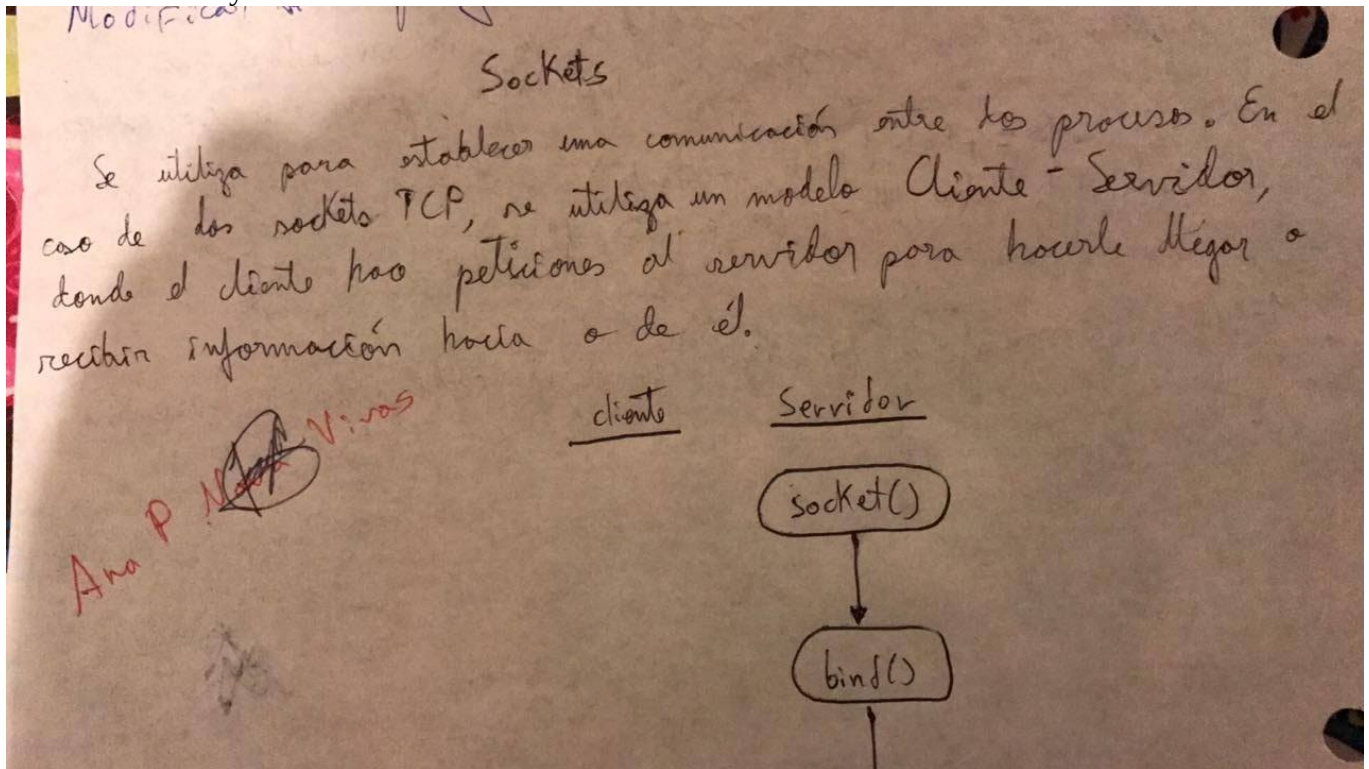 Modificar
Sockets
Se utiliza para establecer una comunicación entre dos procesos. En el
caso de dos sockets TCP, se utiliza un modelo Cliente - Servidor,
donde el cliente hace peticiones al servidor para hacerle llegar o
recibir información hacia o de él.
cliente Servidor
Ana P Vivas
socket()
bind()